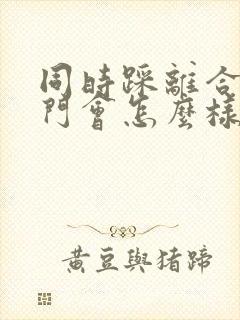 同時踩離合
門會怎麼樣
黃豆與豬蹄